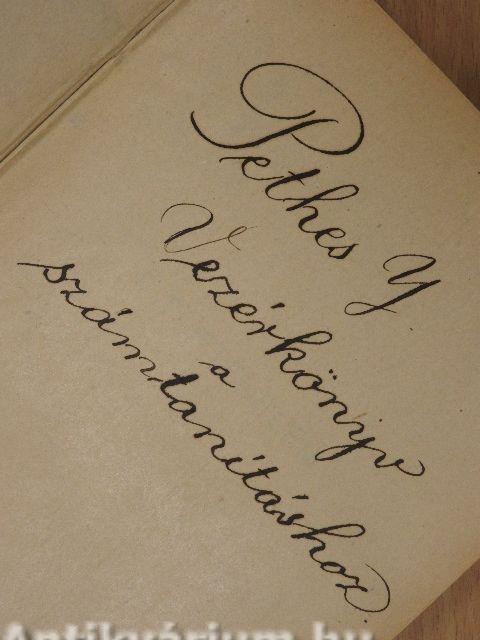 Pethes Y
Vezérkönyv
a
számtanításhoz.
Antikvárium.hu